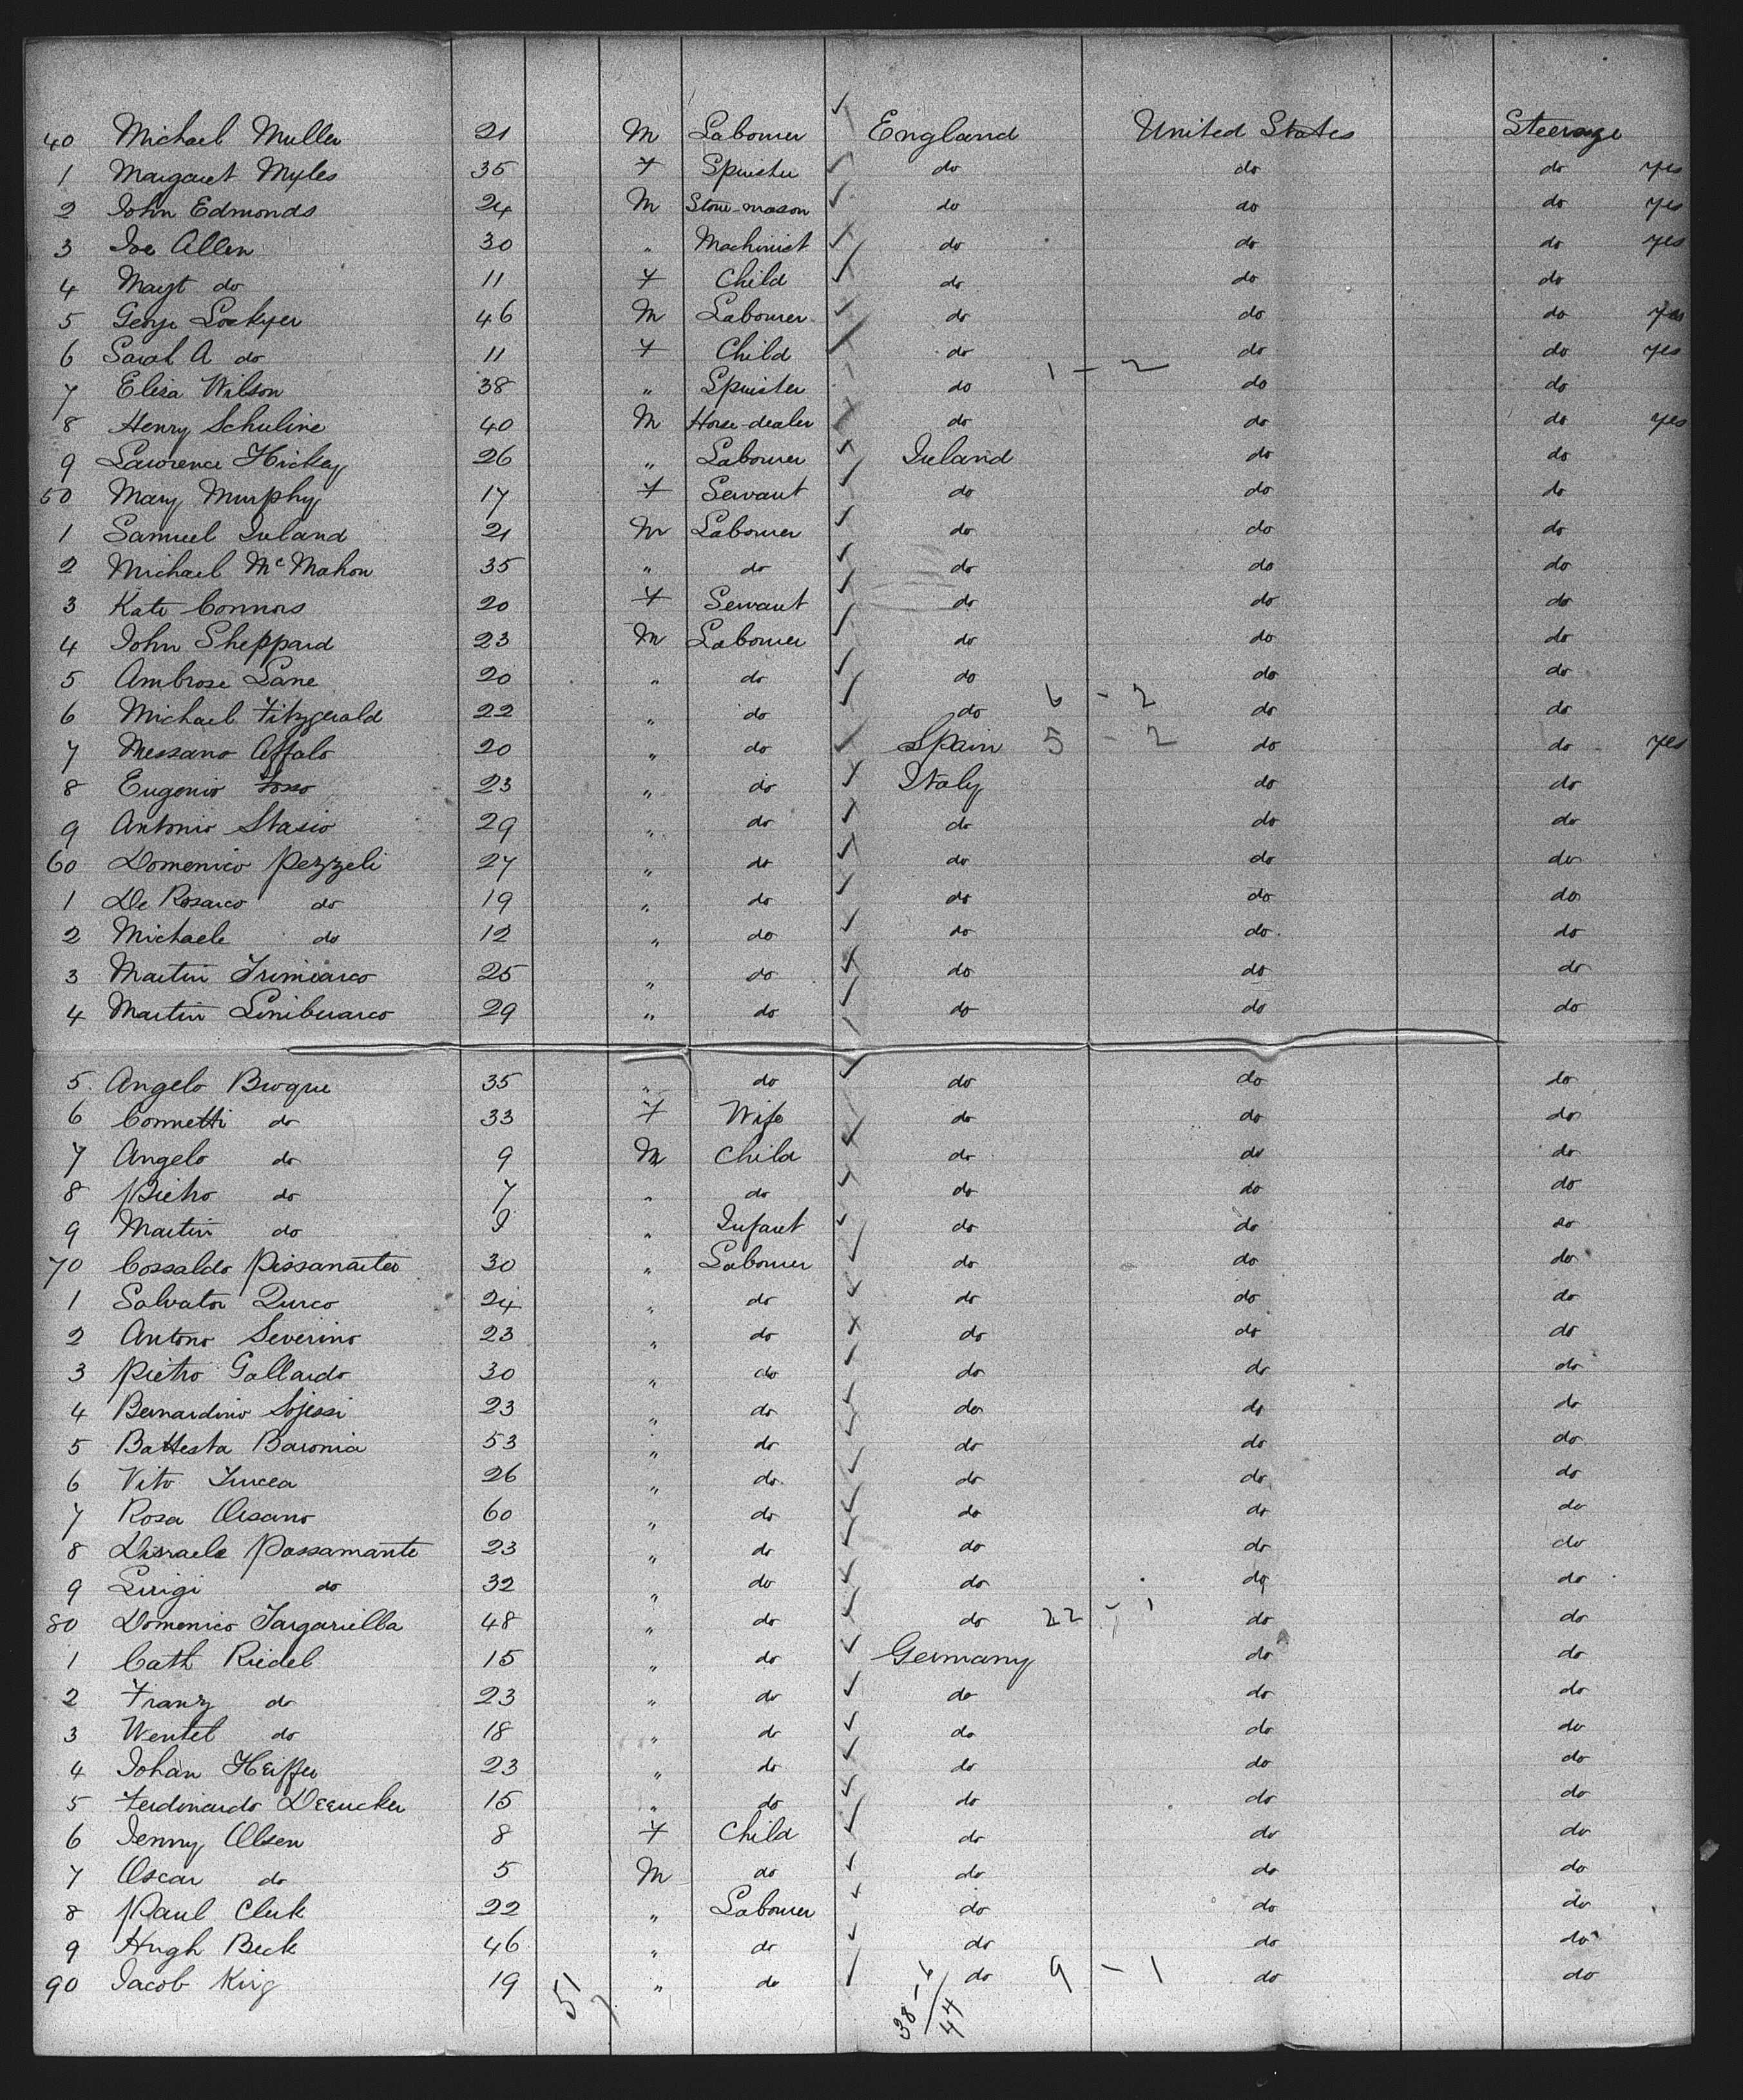 40 Michael Muller 21 M Labourer ✓ England United States Steerage
1 Margaret Myles 35 F Spinster ✓ do do do yes
2 John Edmonds 24 M Stone-mason ✓ do do do yes
3 Joe Allen 30 " Machinist ✓ do do do yes
4 Magt do 11 F Child ✓ do do do
5 George Lockyer 46 M Labourer ✓ do do do yes
6 Sarah A do 11 F Child ✓ do do do yes
1 - 2
7 Elisa Wilson 38 " Spinster do do do
8 Henry Schuline 40 M Horse-dealer ✓ do do do yes
9 Lawrence Hickey 26 " Labourer ✓ Ireland do do
50 Mary Murphy 17 F Servant ✓ do do do
1 Samuel Ireland 21 M Labourer ✓ do do do
2 Michael McMahon 35 " do ✓ do do do
3 Kate Connors 20 F Servant ✓ do do do
4 John Sheppard 23 M Labourer ✓ do do do
5 Ambrose Lane 20 " do ✓ do do do
6 Michael Fitzgerald 22 " do ✓ do 6 - 2 do do
7 Messano Affalo 20 " do ✓ Spain 5 - 2 do do yes
8 Eugenio 23 " do ✓ Italy do do
9 Antonio Stasio 29 " do ✓ do do do
60 Domenico Pezzeli 27 " do ✓ do do do
1 De Rosarco do 19 " do ✓ do do do
2 Michaele do 12 " do ✓ do do do
3 Martin 25 " do ✓ do do do
4 Martin 29 " do ✓ do do do
5 Angelo Broque 35 " do ✓ do do do
6 Connetti do 33 F Wife do do do
7 Angelo do 9 M Child ✓ do do do
8 Pietro do 7 " do ✓ do do do
9 Martin do " Infant ✓ do do do
70 Cossaldo 30 " Labourer ✓ do do do
1 Salvator Durco 24 " do ✓ do do do
2 Antono Severino 23 " do ✓ do do do
3 Pietro Gallardo 30 " do ✓ do do do
4 Bernardino 23 " do ✓ do do do
5 Battesta Baronia 53 " do do do do
6 Vito 26 " do ✓ do do do
7 Rosa Orsano 60 " do ✓ do do do
8 Passamante 23 " do ✓ do do do
9 Luigi do 32 " do ✓ do do do
80 Domenico Targariella 48 " do ✓ do 22 - 1 do do
1 Cath Riedel 15 " do ✓ Germany do do
2 Franz do 23 " do ✓ do do do
3 Wentel do 18 " do ✓ do do do
4 Johan Heiffer 23 " do ✓ do do do
5 Ferdinardo 15 " do ✓ do do do
6 Jenny Olsen 8 F Child ✓ do do do
7 Oscar do 5 M do ✓ do do do
8 Paul Cluk 22 " Labourer ✓ do do do
9 Hugh Beck 46 " do ✓ do do do
90 Jacob King 19 " do ✓ do 9 - 1 do do
51
38-6
44